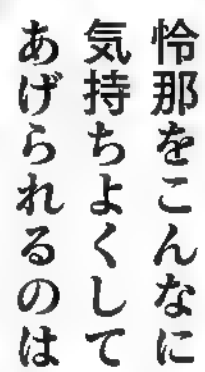 怜那をこんなに
気持ちよくして
あげられるのは